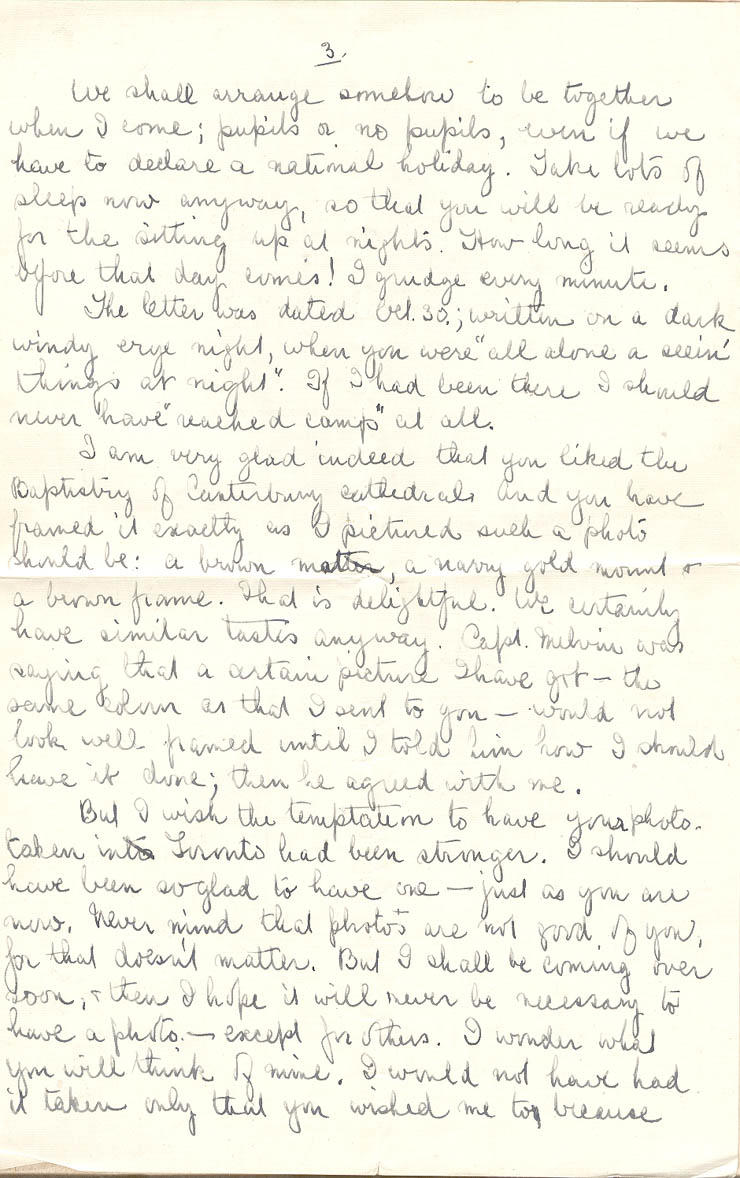 3.
We shall arrange somehow to be together
when I come; pupils or no pupils, even if we
have to declare a national holiday. Take lots of
sleep now anyway, so that you will be ready
for the sitting up at nights. How long it seems
before that day comes! I grudge every minute.
The letter was dated Oct. 30.; written on a dark
windy night, when you were "all alone a seein'
things at night". If I had been there I should
never have "reached camp" at all.
I am very glad indeed that you liked the
Baptistry of Canterbury cathedral and you have
framed it exactly as I pictured such a photo
should be: a brown matter, a narry gold mount &
a brown frame. That is delightful. We certainly
have similar tastes anyway. Capt. Melvin was
saying that a certain picture I have got – the
same colour as that I sent to you – would not
look well framed until I told him how I should
have it done; then he agreed with me.
But I wish the temptation to have your photo.
taken in Toronto had been stronger. I should
have been so glad to have one – just as you are
now. Never mind that photos are not good of you,
for that doesn't matter. But I shall be coming over
soon, & then I hope it will never be necessary to
have a photo. – except for others. I wonder what
you will think of mine. I would not have had
it taken only that you wished me to, because